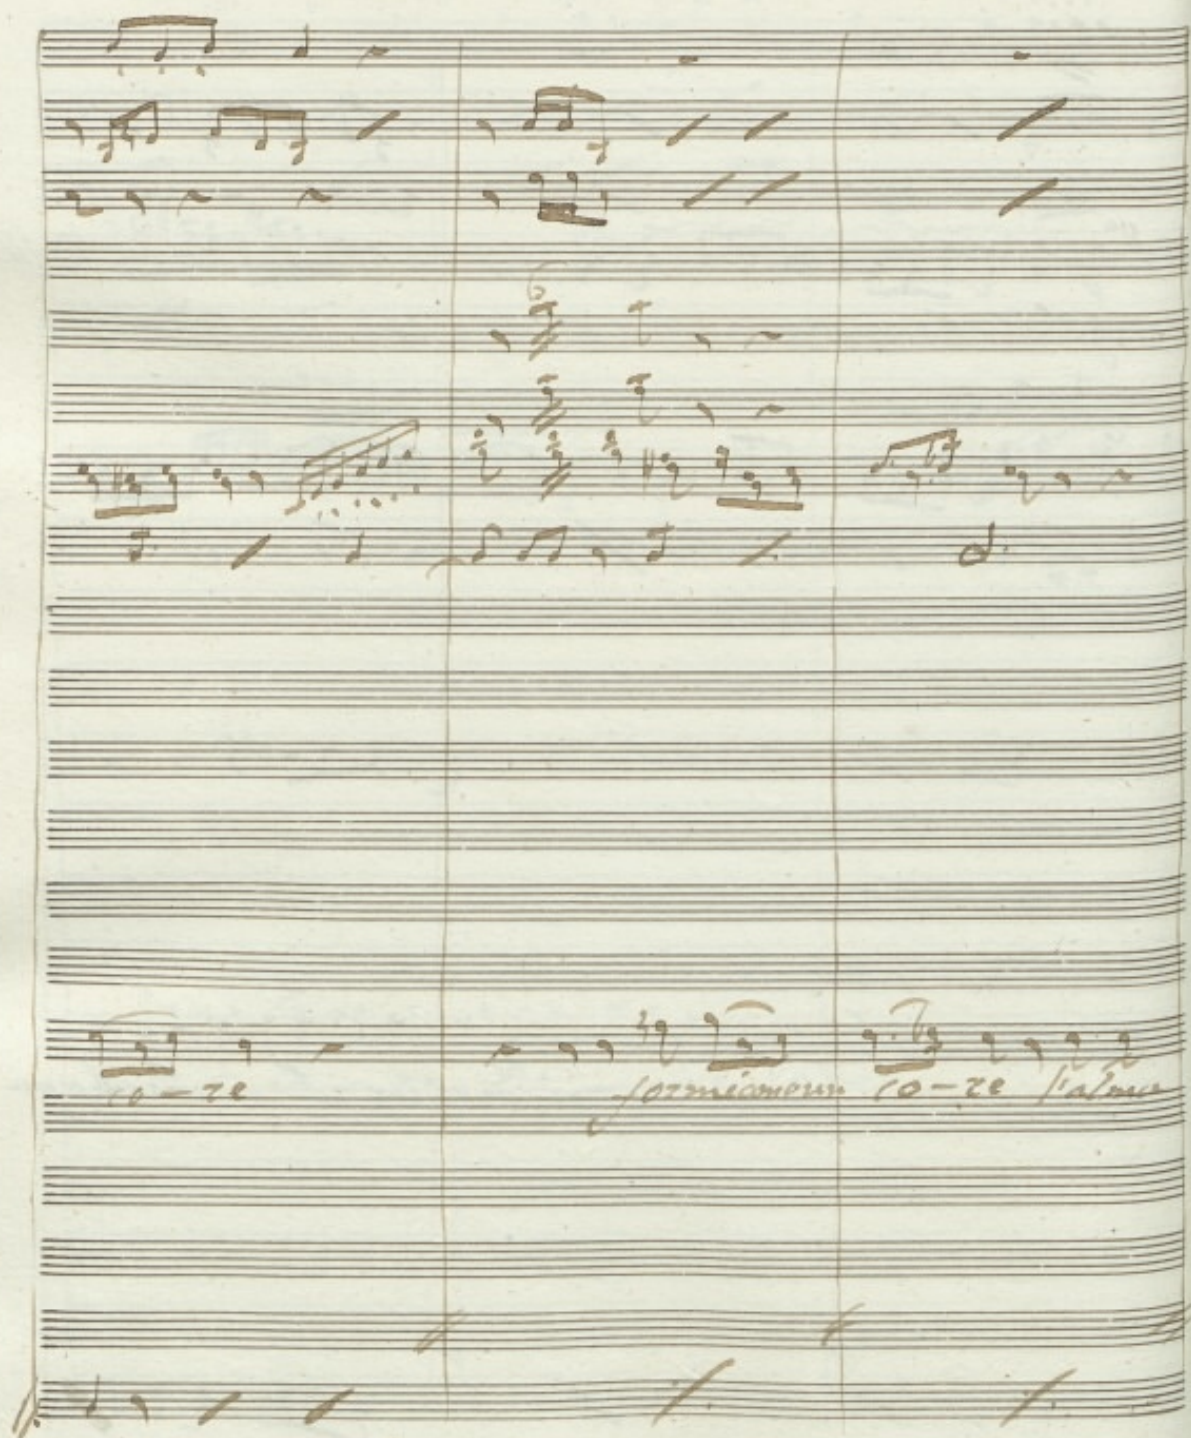 co-re formicomoun co-re l'alma